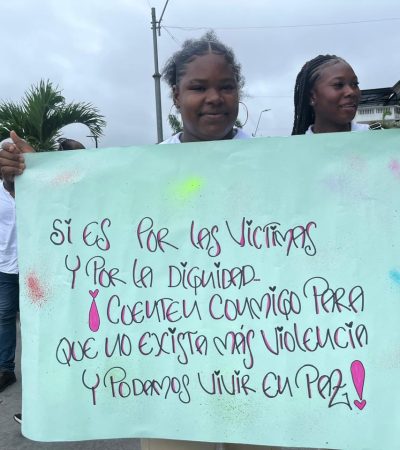 Si es por las victimas
y por la dignidad..
¡Cuenten conmigo para
que no exista más violencia
y podamos vivir en paz!